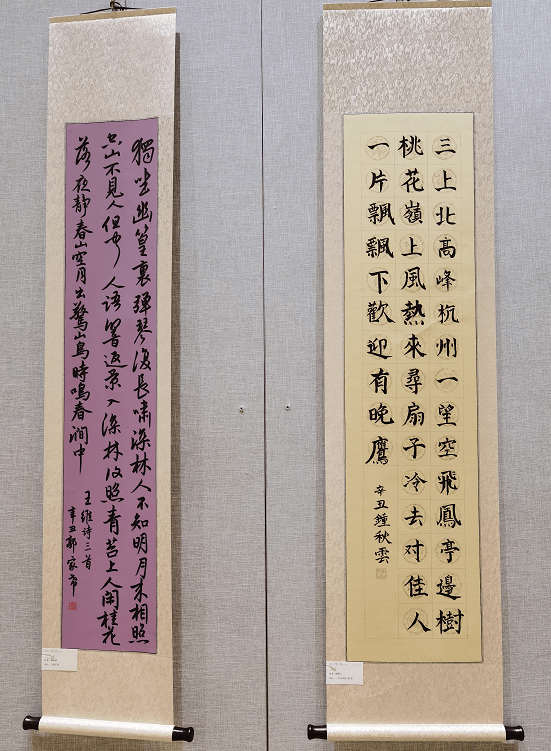 三上北高峰杭州一望空飛鳳亭邊樹
桃花嶺上風熱來尋扇子冷去对佳人
一片飄飄下歡迎有晚鷹
辛丑鍾秋雲
獨坐幽篁裏彈琴復長嘯深林人不知明月来相照
空山不見人但闻人语響返景入深林復照青苔上人闲桂花
落夜静春山空月出驚山鳥時鳴春澗中
王维诗三首
辛丑郭家